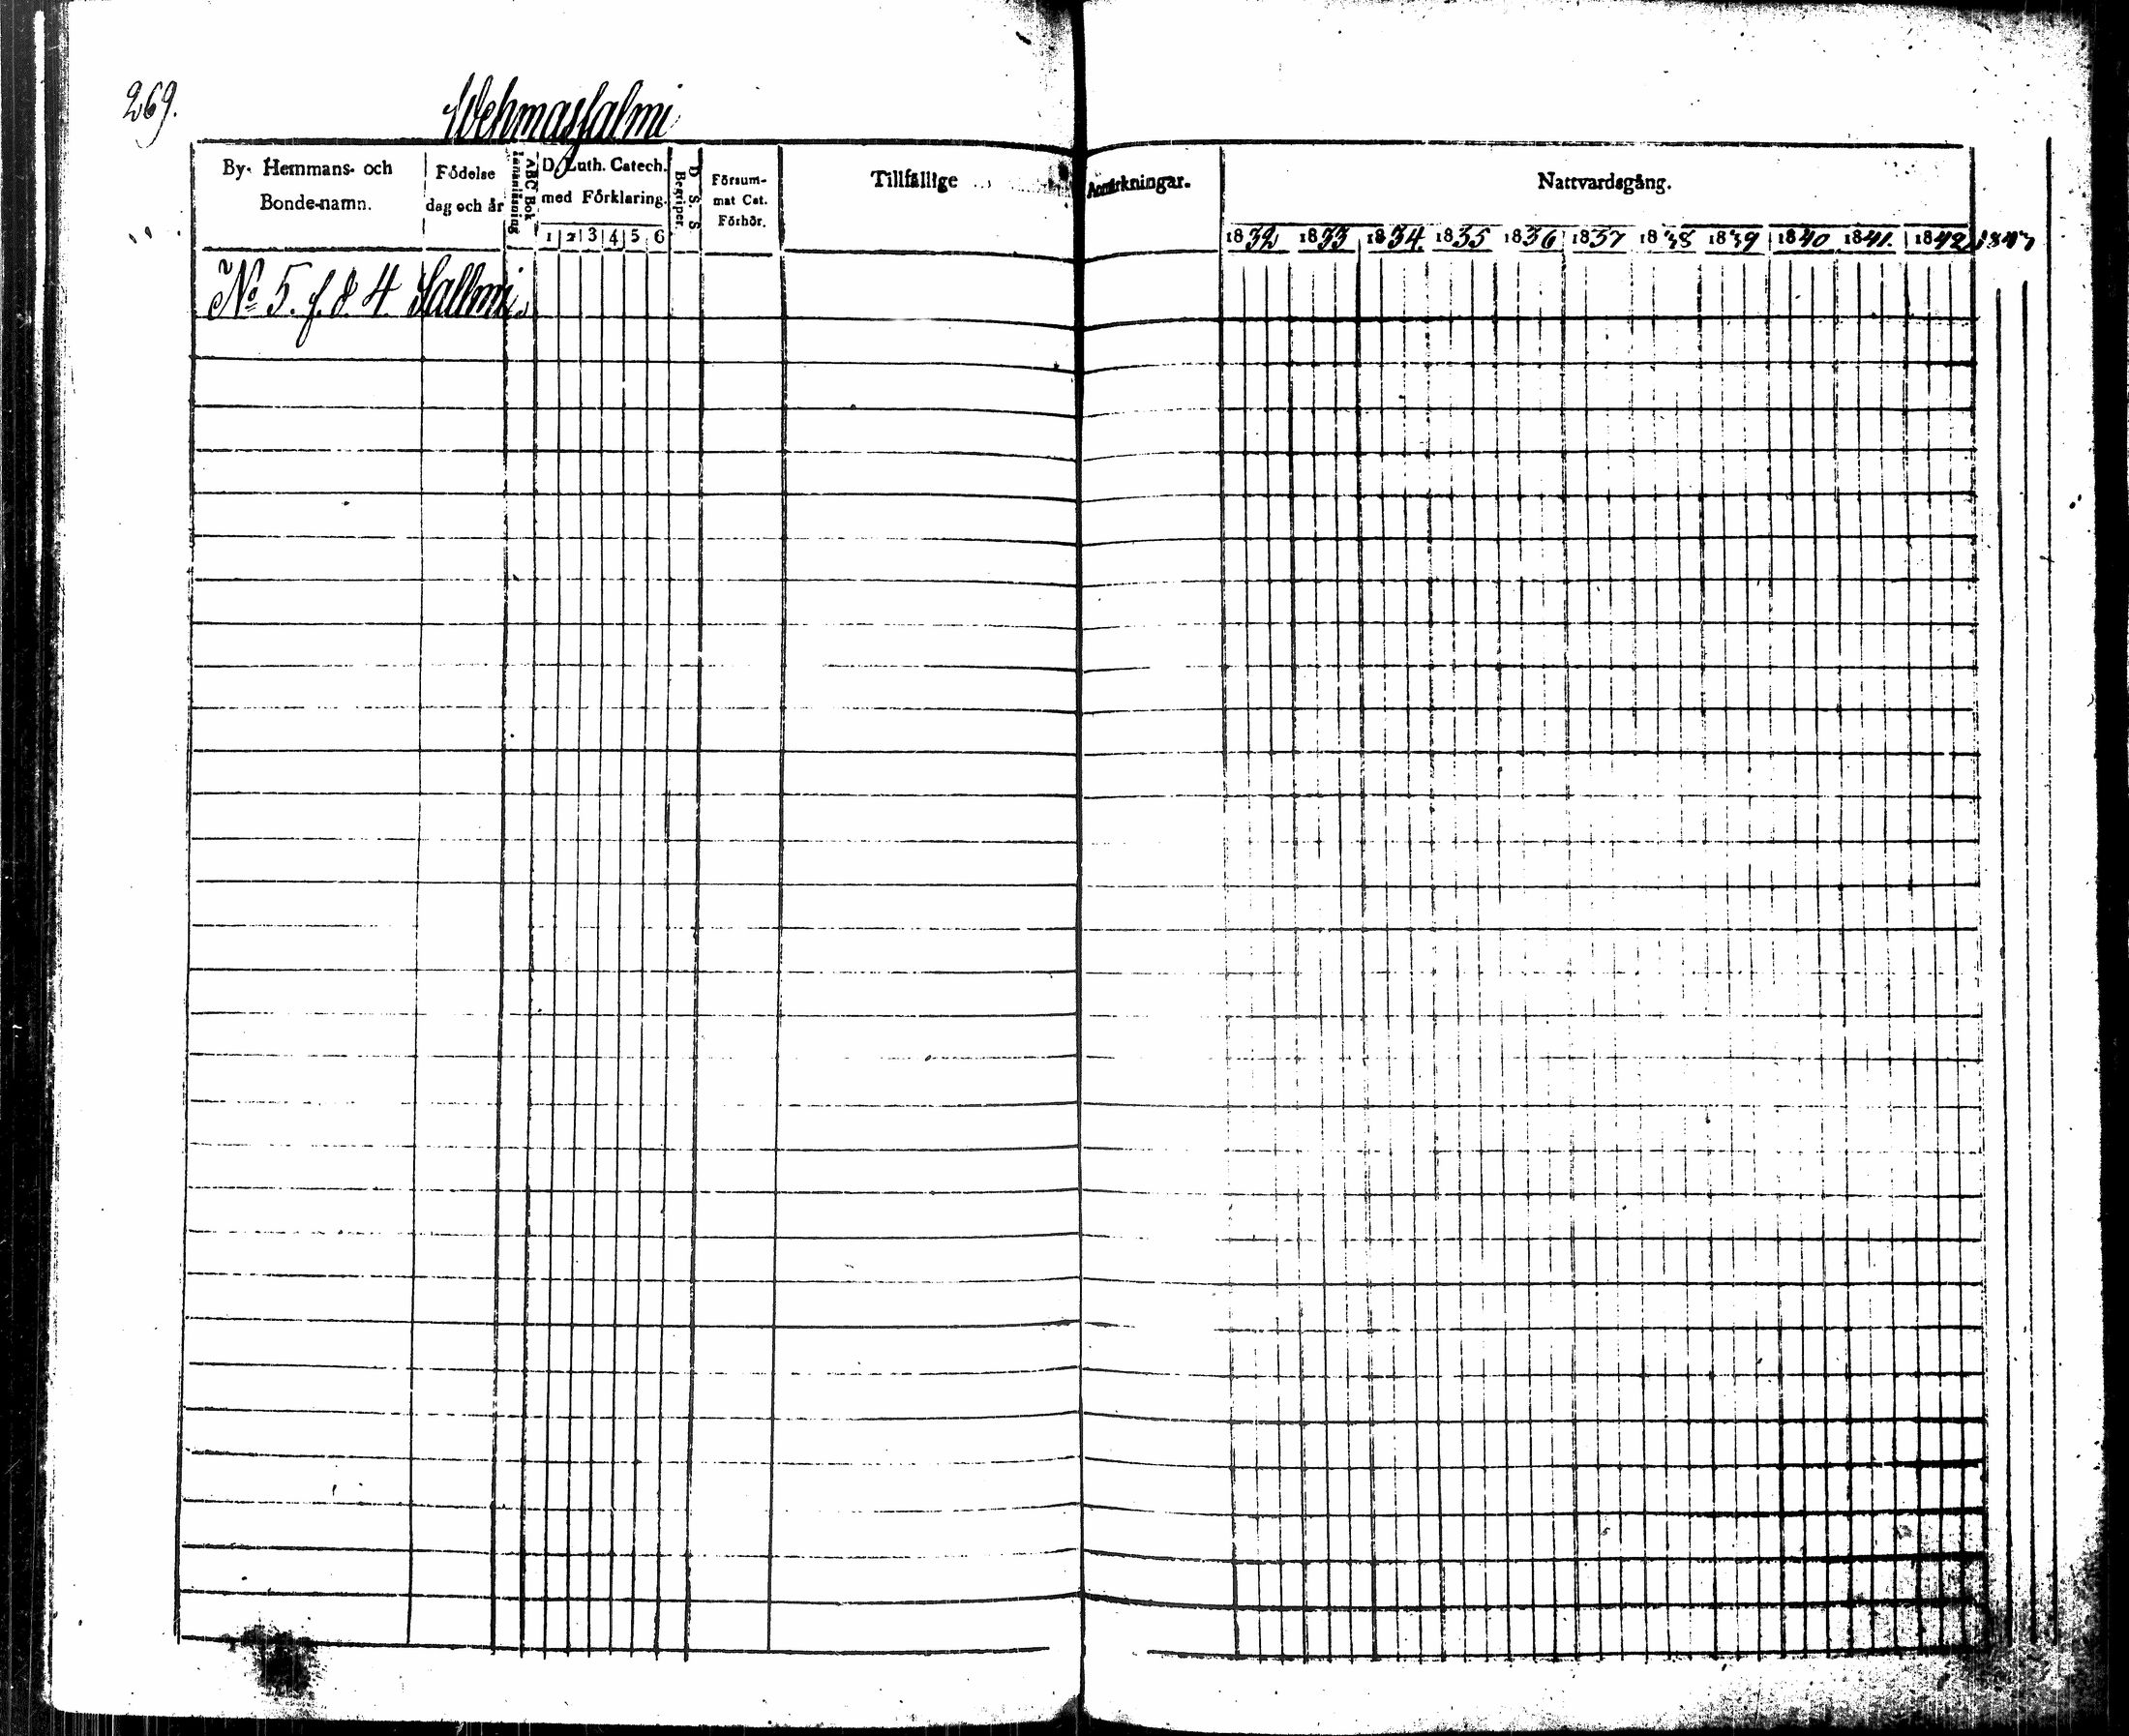 269.
Wehmassalmi
By- Hemmans- och
Bonde-namn.
Födelse
dag och år
ABC Bok
Innanläsning
D. Luth. Catech.
med Förklaring.
1 2 3 4 5 6
D. S. S
Begriper.
Försum-
mat Cat.
Förhör.
Tillfällige
Anmärkningar.
Nattvardsgång.
1832 1833 1834. 1835 1836 1837 1838 1839 1840 1841. 1842 1843
No 5. f. d. 4. Sallmi